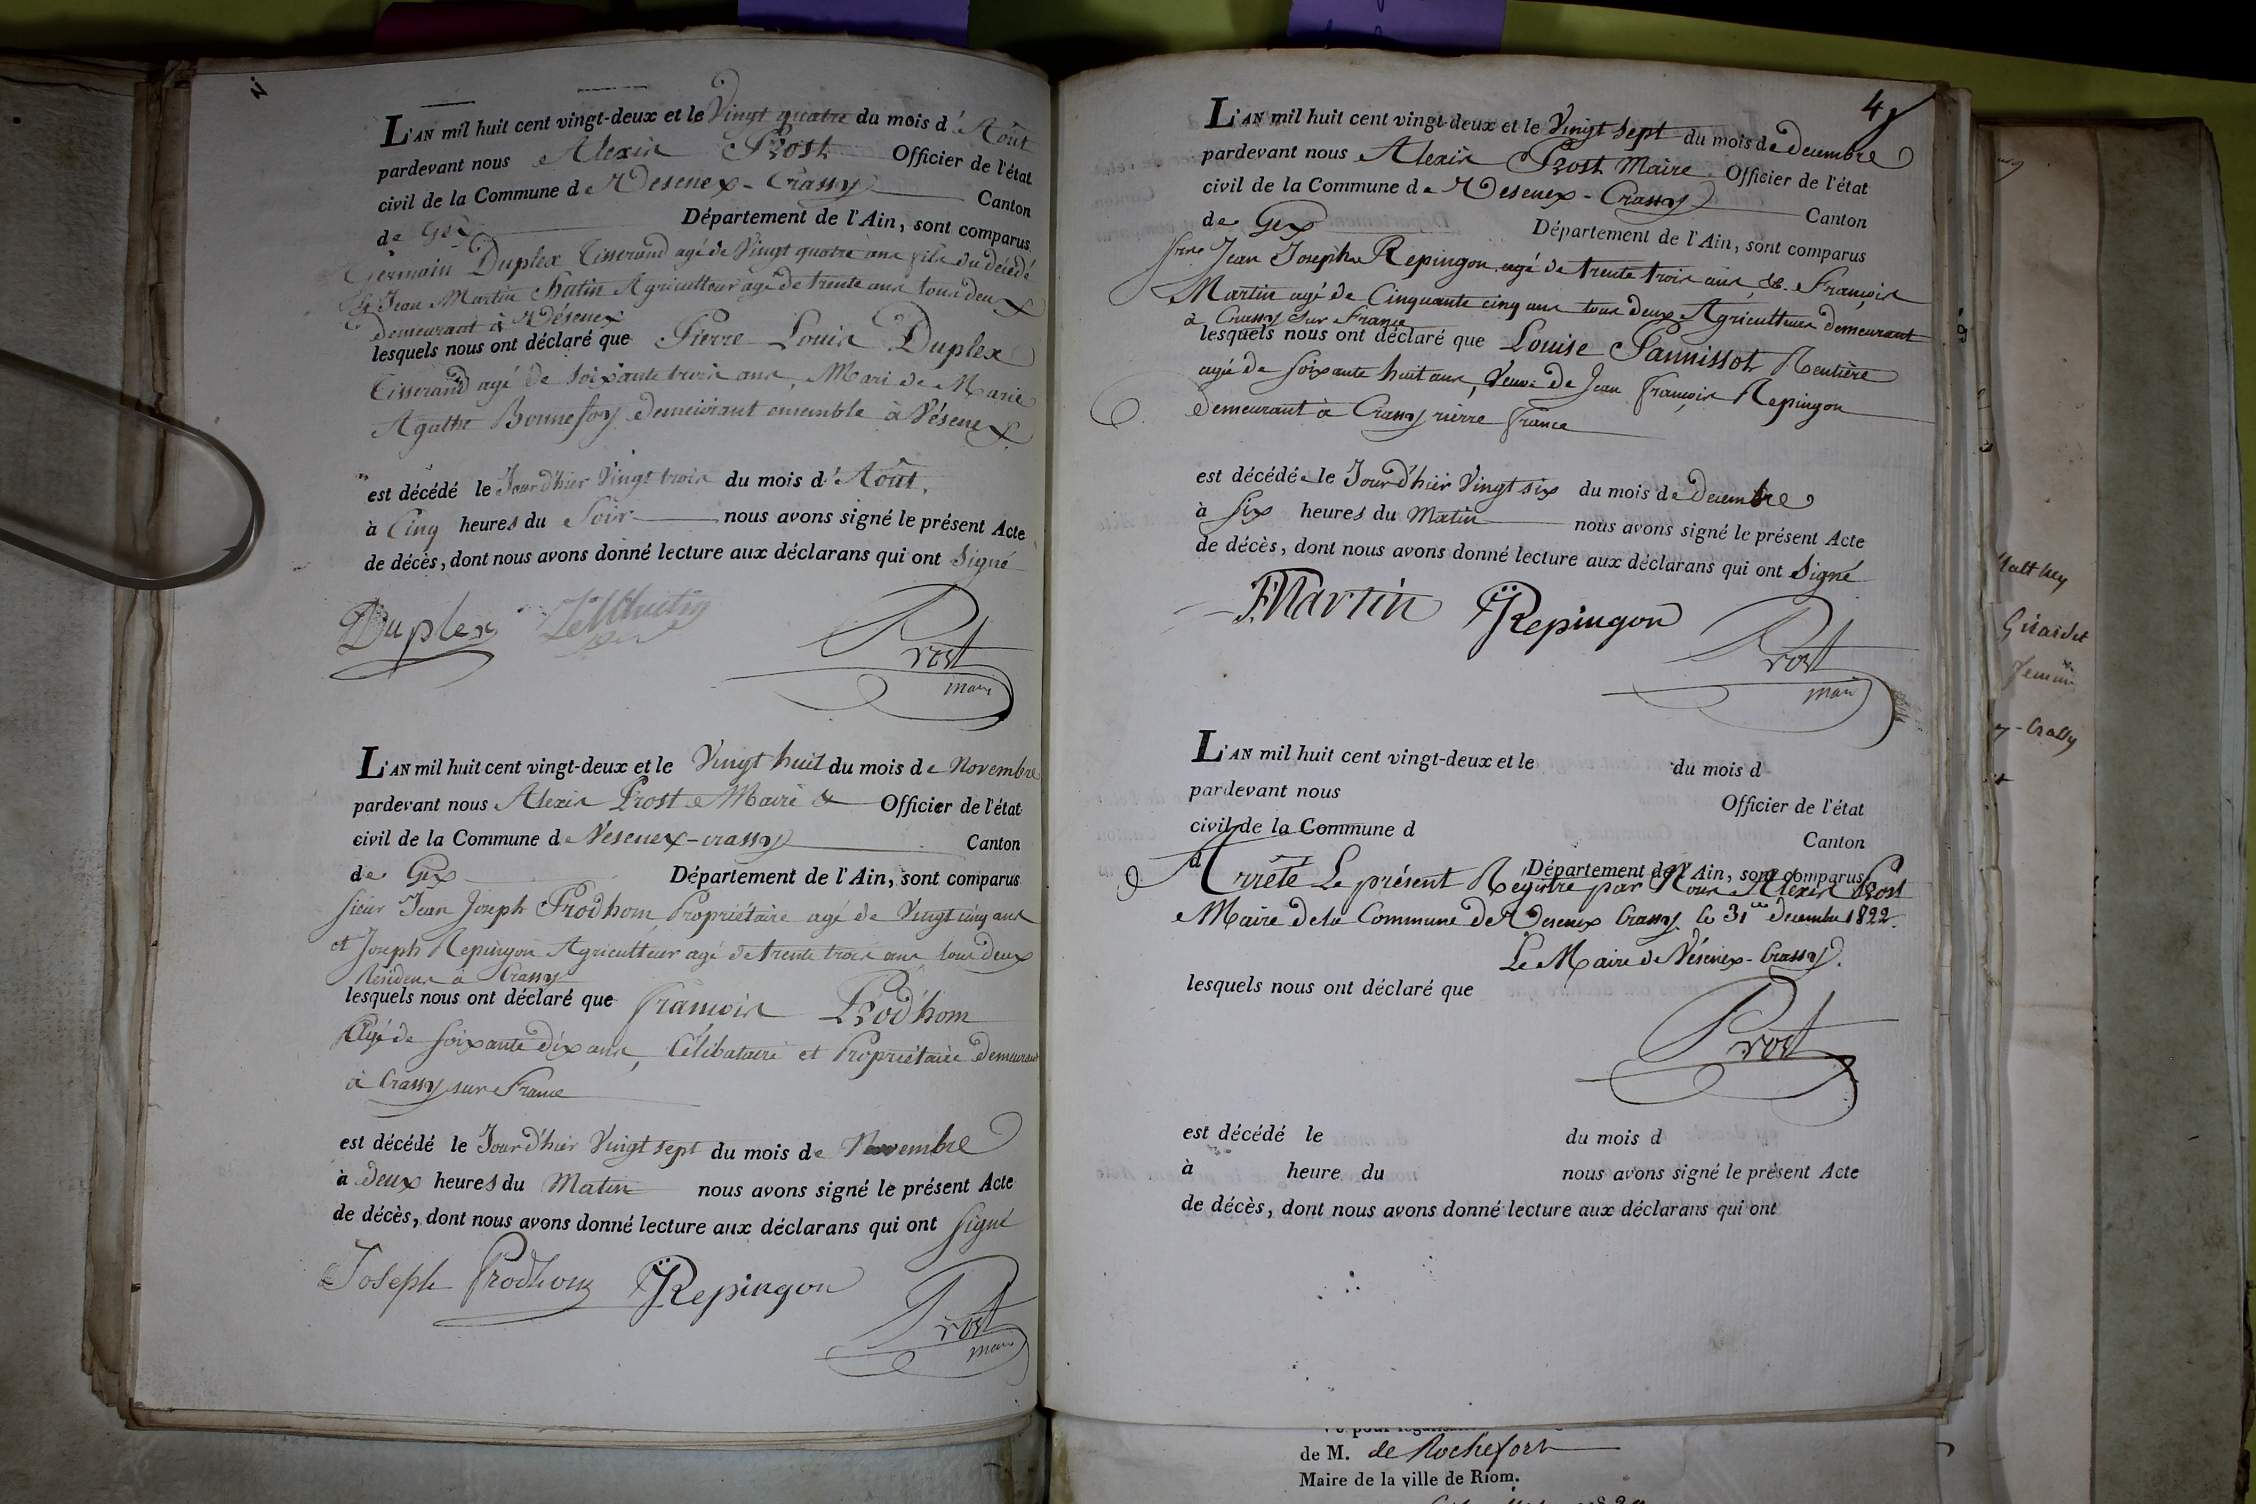 L'AN mil huit cent vingt-deux et le Vingt quatre du mois d'Août
pardevant nous Alexis Prost Officier de l'état
civil de la Commune de Vesenex-Crassy Canton
de Gex Département de l'Ain, sont comparus
Germain Duplex Tisserand agé de Vingt quatre ans fils du décédé
et Jean Martin Chatin Agriculteur agé de trente ans tous deux
demeurant à Vésenex
lesquels nous ont déclaré que Pierre Louis Duplex
Tisserand agé de soixante trois ans, Mari de Marie
Agathe Bonnefoy demeurant ensemble à Vésenex
est décédé le Jourd'hier Vingt trois du mois d'Août.
à Cinq heures du Soir nous avons signé le présent Acte
de décès, dont nous avons donné lecture aux déclarans qui ont Signé
Duplex
Prost
maire
L'AN mil huit cent vingt-deux et le Vingt huit du mois de Novembre
pardevant nous Alexis Prost Maire & Officier de l'état
civil de la Commune de Vesenex-crassy Canton
de Gex Département de l'Ain, sont comparus
sieur Jean Joseph Prodhom Propriétaire agé de Vingt cinq ans
et Joseph Repingon Agriculteur agé de trente trois ans tous deux
Résidens à Crassy
lesquels nous ont déclaré que François Prod'hom
Agé de soixante dix ans, Célibataire et Propriétaire demeurant
à Crassy sur France
est décédé le Jourd'hier Vingt sept du mois de Novembre
à deux heures du Matin nous avons signé le présent Acte
de décès, dont nous avons donné lecture aux déclarans qui ont signé
Joseph Prodhom JJRepingon
Prost
maire
4
L'AN mil huit cent vingt-deux et le Vingt sept du mois de decembre
pardevant nous Alexis Prost Maire Officier de l'état
civil de la Commune de Vesenex-Crassy Canton
de Gex Département de l'Ain, sont comparus
Jean Joseph Repingon agé de trente trois ans, & François
Martin agé de Cinquante cinq ans tous deux Agriculteurs demeurant
à Crassy sur France
lesquels nous ont déclaré que Louise Pannissot Rentière
agée de soixante huit ans, Veuve de Jean François Repingon
demeurant à Crassy rière france
est décédée le Jourd'hier Vingt six du mois de Decembre
à six heures du Matin nous avons signé le présent Acte
de décès, dont nous avons donné lecture aux déclarans qui ont Signé
F.Martin JJRepingon
Prost
maire
L'AN mil huit cent vingt-deux et le du mois d
pardevant nous Officier de l'état
civil de la Commune d Canton
d Département de l'Ain, sont comparus
Arrêté Le présent Registre par Nous Alexis Prost
Maire de la Commune de Vesenex Crassy. le 31 decembre 1822.
Le Maire de Vésenex-Crassy.
lesquels nous ont déclaré que
Prost
est décédé le du mois d
à heure du nous avons signé le présent Acte
de décès, dont nous avons donné lecture aux déclarans qui ont
Girardet
de M. de Rochefort
Maire de la ville de Riom.